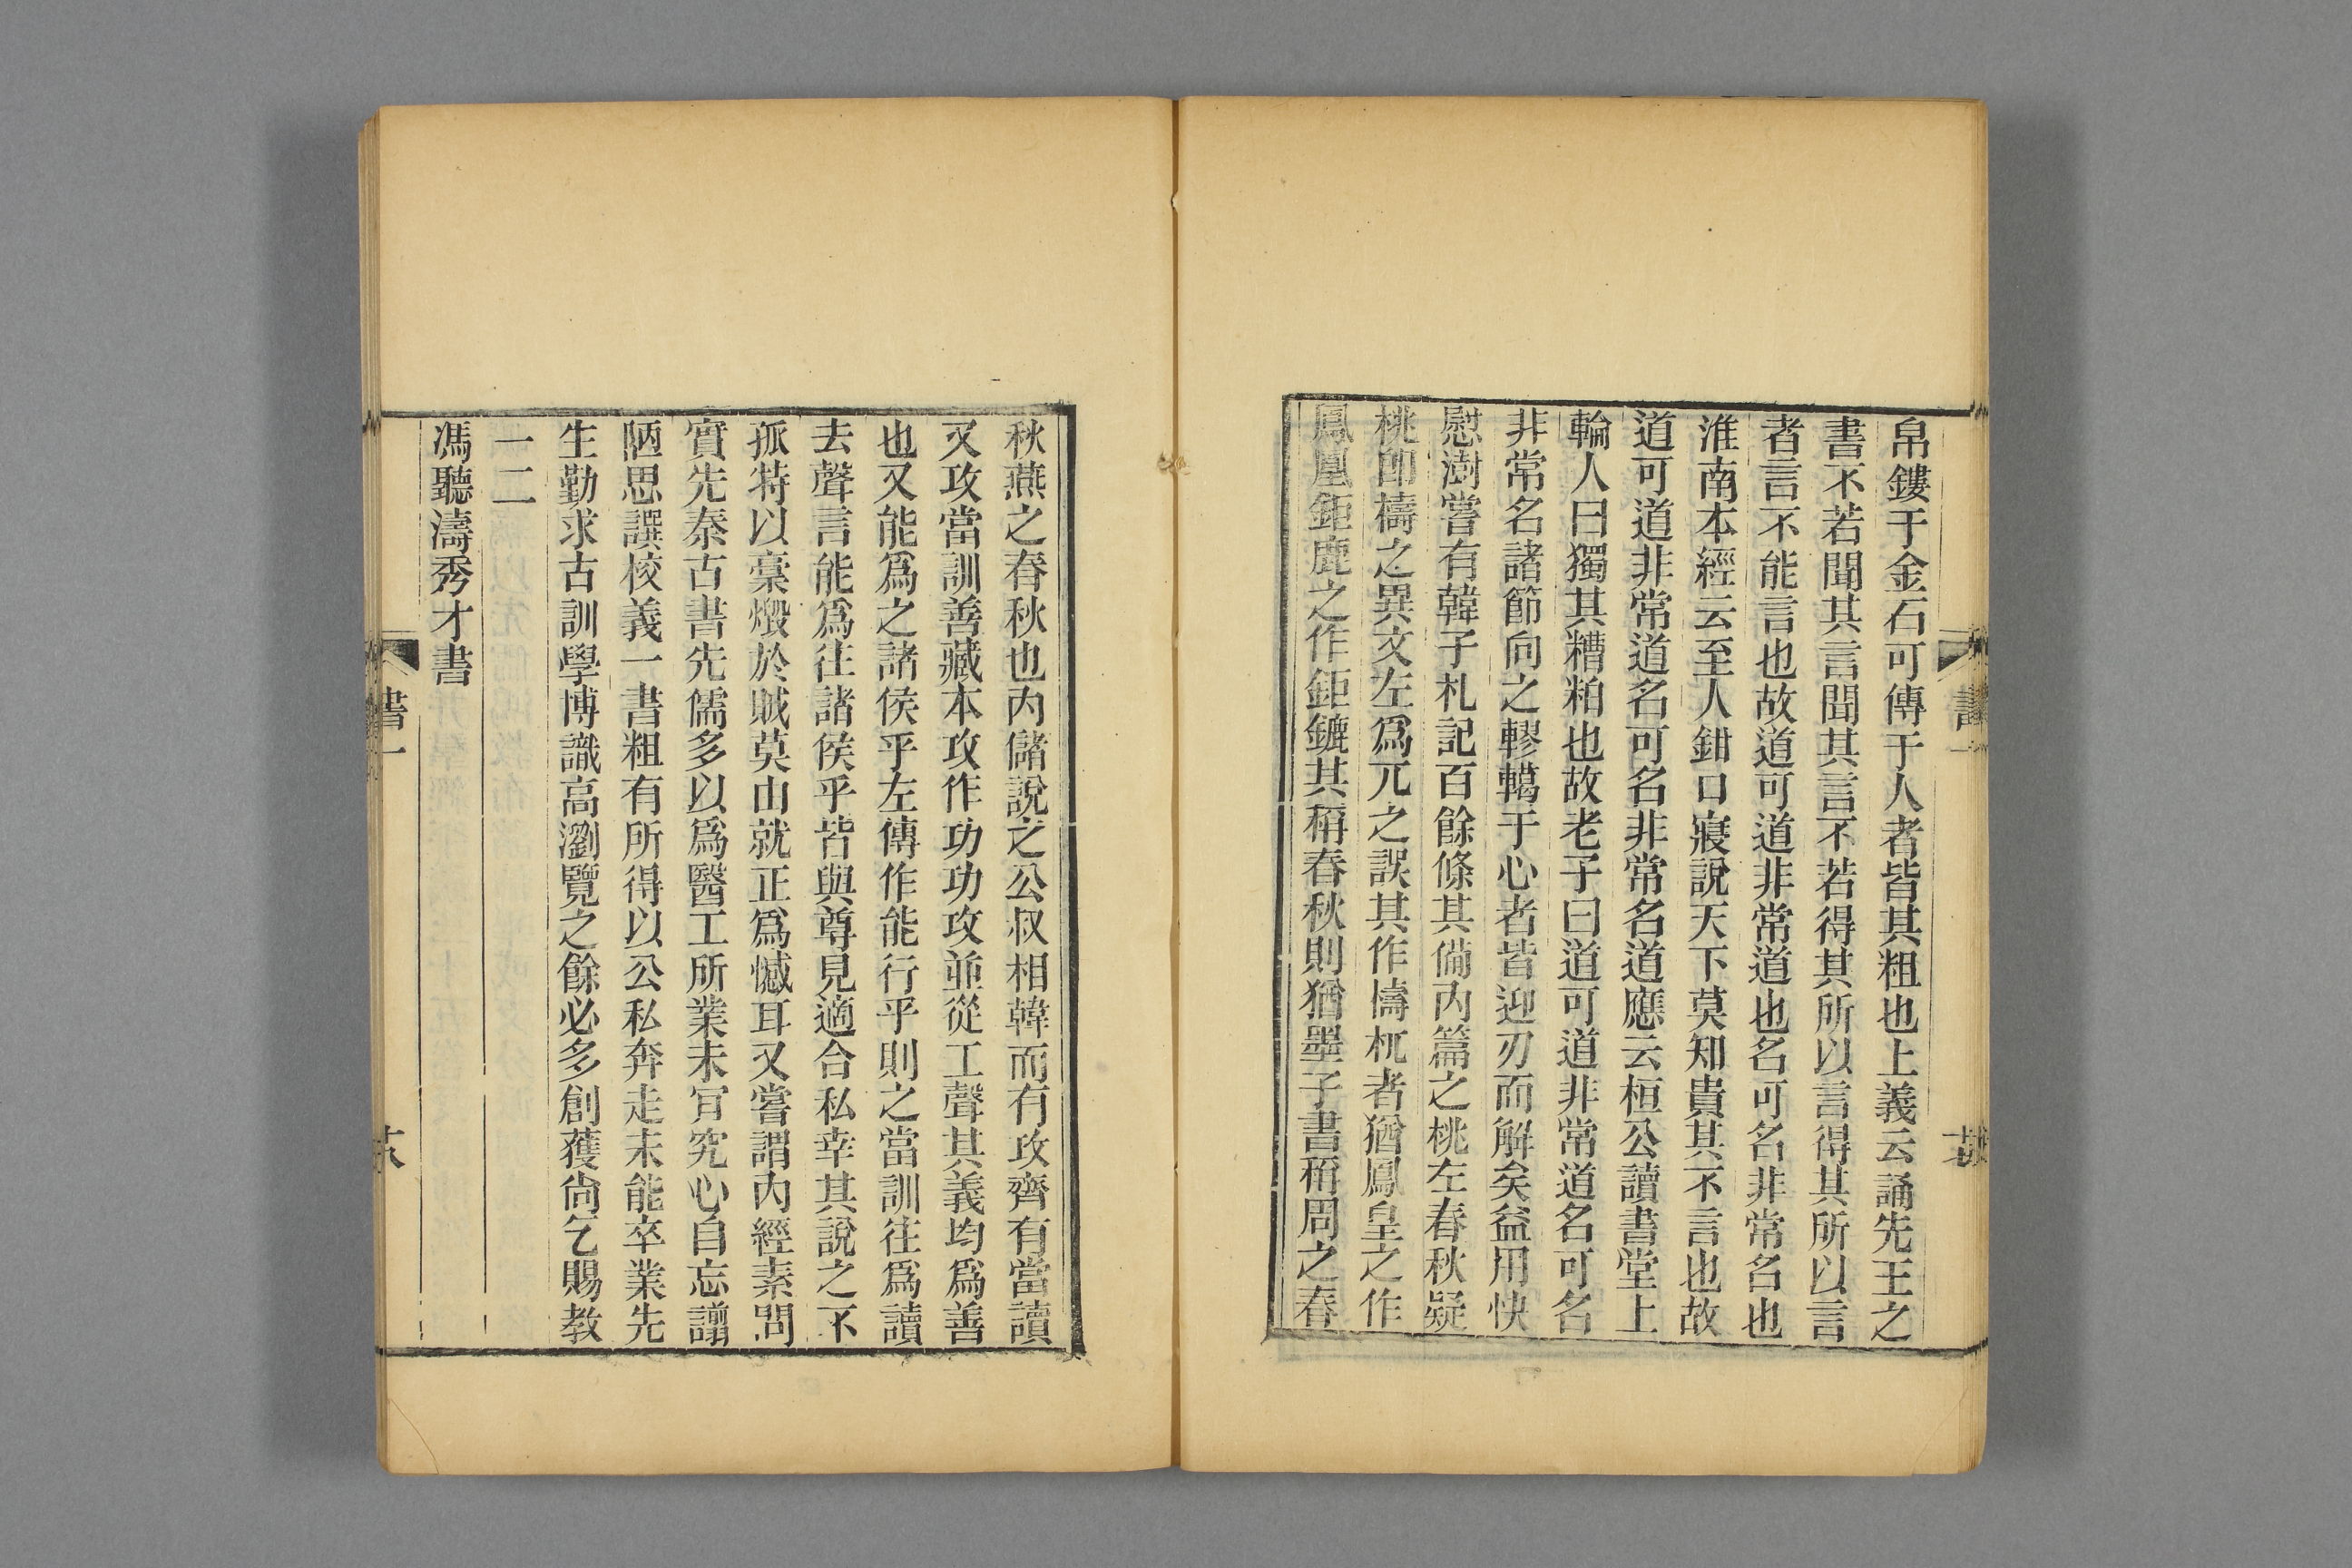 帛鏤于金石可傳于人者皆其粗也上義云誦先王之
書不若聞其言聞其言不若得其所以言得其所以言
者言不能言也故道可道非常道也名可名非常名也
淮南本經云至人鉗口寢說天下莫知貴其不言也故
道可道非常道名可名非常名道應云桓公讀書堂上
輪人曰獨其糟粕也故老子曰道可道非常道名可名
非常名諸節向之轇轕于心者皆迎刃而解矣益用快
慰澍嘗有韓子札記百餘條其僃內篇之桃左春秋疑
桃卽檮之異文左爲兀之誤其作檮杌者猶鳳皇之作
鳳凰鉅鹿之作鉅鏕其稱春秋則猶墨子書稱周之春
秋燕之春秋也內儲說之公叔相韓而有攻齊有當讀
又攻當訓善藏本攻作功功攻並從工聲其義均爲善
也又能爲之諸侯乎左傳作能行乎則之當訓往爲讀
去聲言能爲往諸侯乎皆與尊見適合私幸其說之不
孤特以稾燬於賊莫由就正爲憾耳又嘗謂內經素問
實先秦古書先儒多以爲醫工所業未肎究心自忘譾
陋思譔校義一書粗有所得以公私奔走未能卒業先
生勤求古訓學博識高瀏覽之餘必多創獲尙乞賜教
一二
馮聽濤秀才書
書一